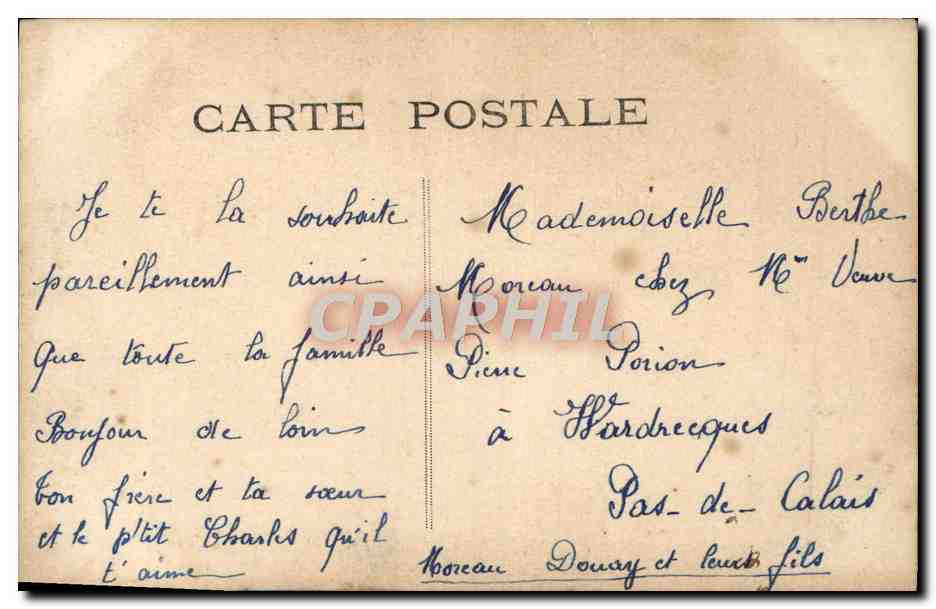 CARTE POSTALE
Je te la souhaite
pareillement ainsi
que toute la famille
Bonjour de loin
ton frère et ta sœur
et le p'tit Charles qu'il
t'aime
Mademoiselle Berthe
Moreau chez Mme Veuve
Pierre Porion
à Wardrecques
Pas-de-Calais
Moreau Douay et leurs fils
CPAPHIL